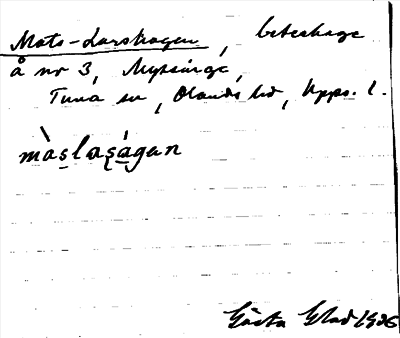 Mats-Larshagen, beteshage
å nr 3, Mysinge,
Tuna sn, Olands hd, Upps. l.
màslaṣágan
Gösta Glad 1936